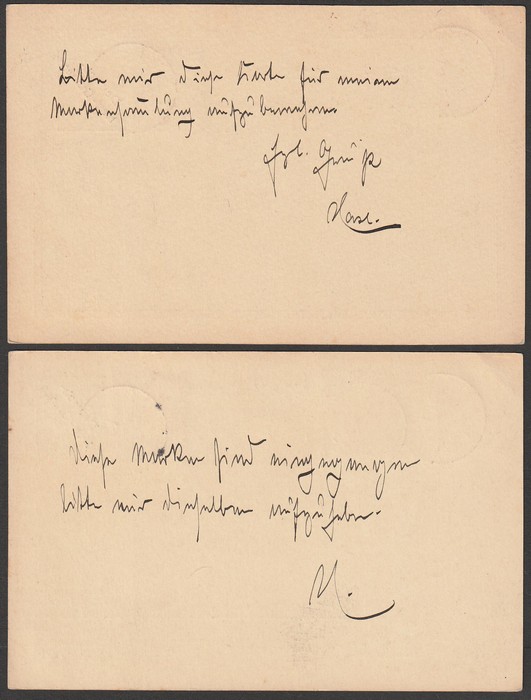 Bitte mir diese Karte für meine
Markensammlung aufzubewahren
hzl. Gruß
diese Marken sind eingegangen
bitte mir dieselben aufzuheben.
K.